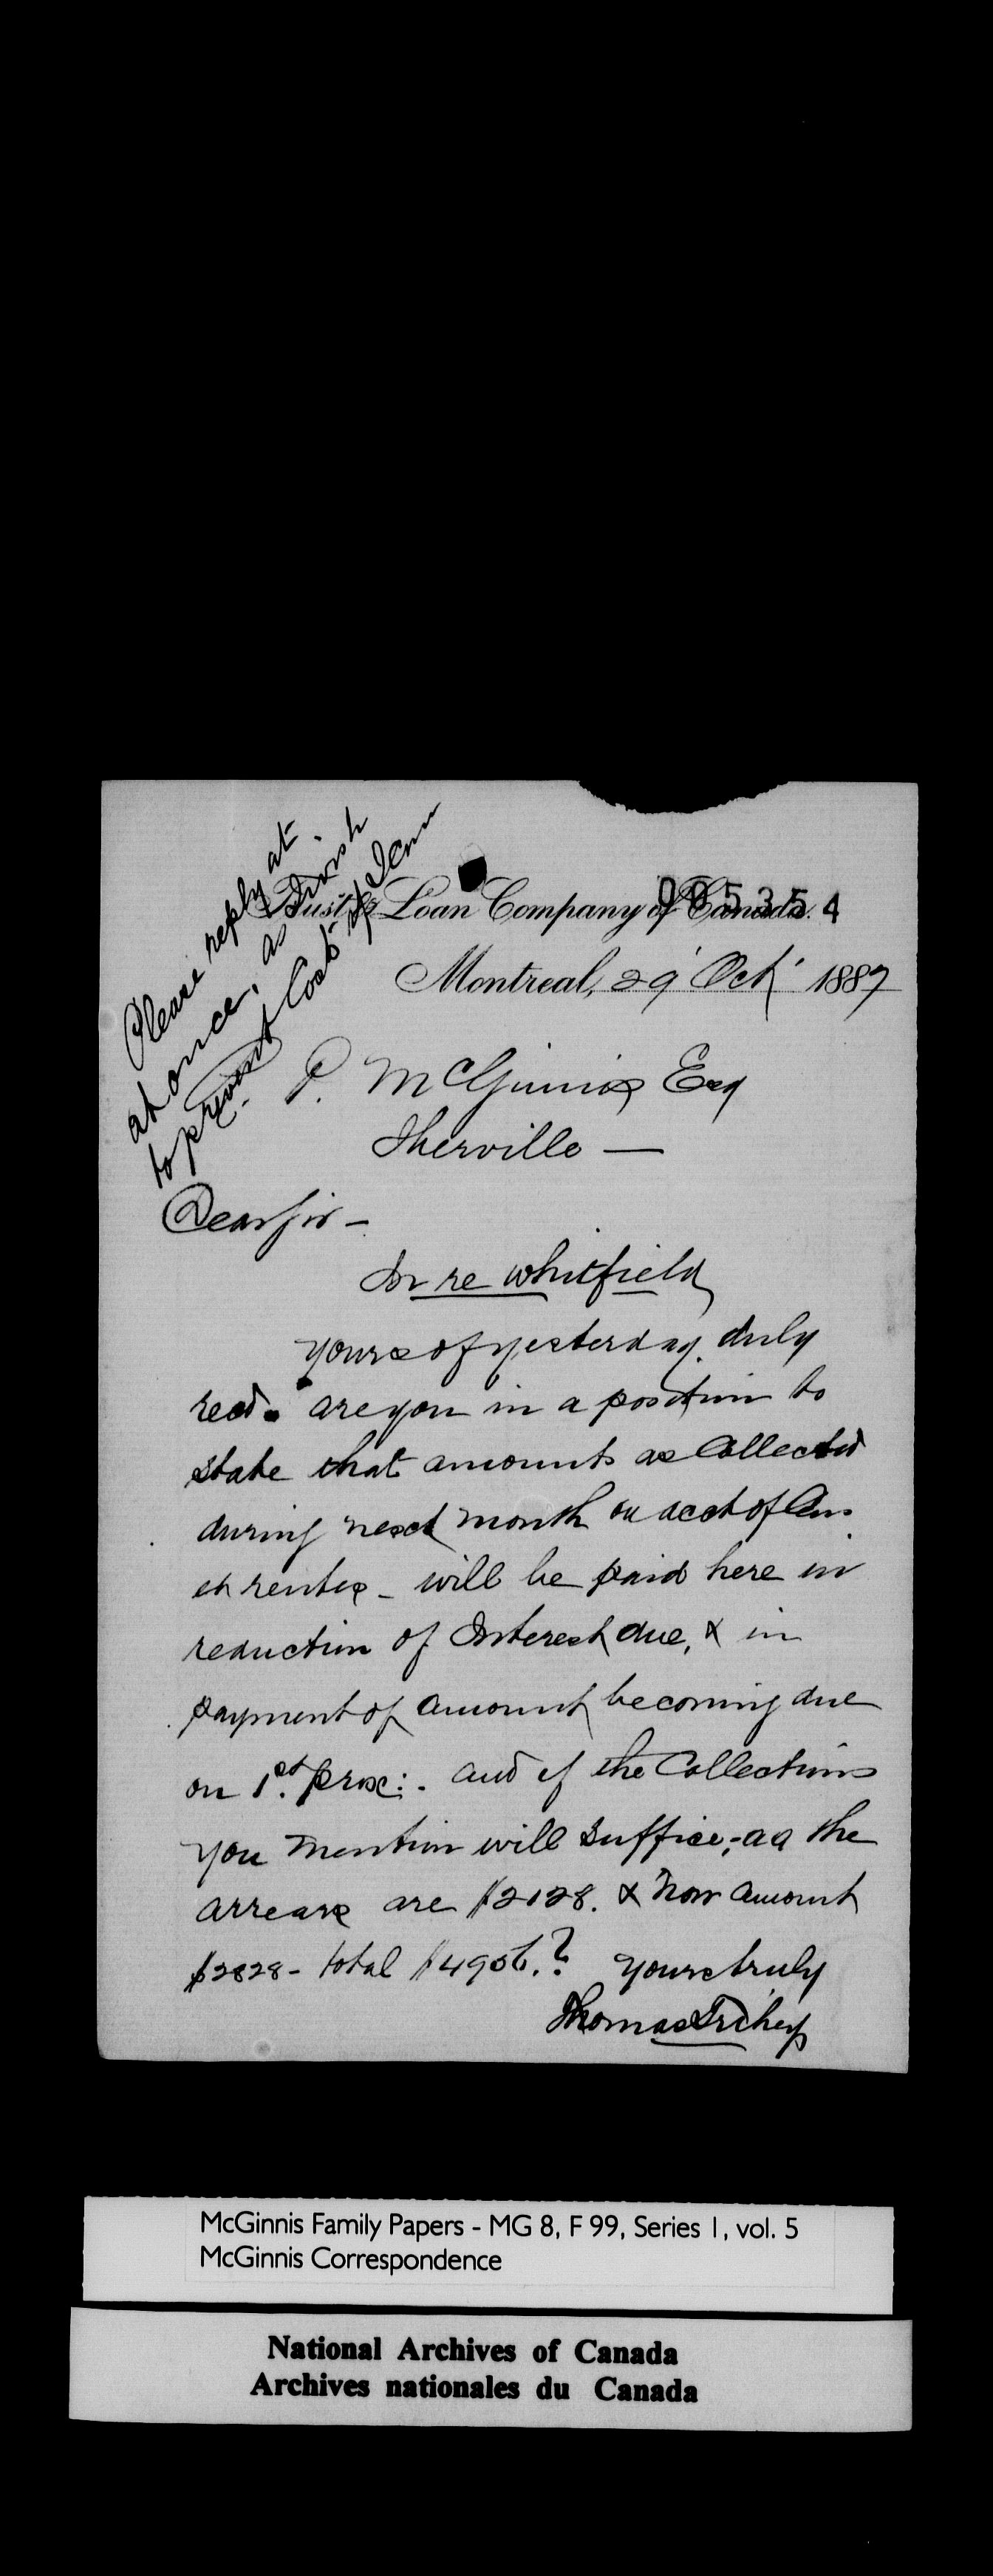 Please reply at
at once, as I wish
to prevent Costs of
Trust & Loan Company of Canada.
005354
Montreal, 29 Oct 1887
P. McGinnis Esq
Iberville —
Dear Sir —
In re Whitfield
Yours of yesterday duly
recd. are you in a position to
state that amounts as Collected
during next month on acct of Cens
et rentes – will be paid here in
reduction of Interest due, & in
payment of amount becoming due
on 1st. prox:. and if the Collections
you mention will suffice, – as the
arrears are $2128. & Nov amount
$2828 – total $4956.? Yours truly
Thomas
McGinnis Family Papers - MG 8, F 99, Series 1, vol. 5
McGinnis Correspondence
National Archives of Canada
Archives nationales du Canada